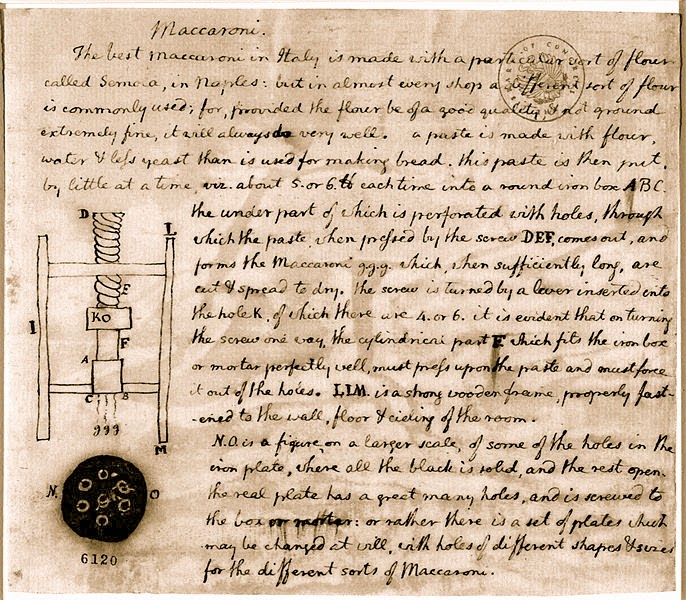 Maccaroni.
The best maccaroni in Italy is made with a particular sort of flour
called Semola, in Naples: but in almost every shop a different sort of flour
is commonly used; for, provided the flour be of a good quality, & not ground
extremely fine, it will always do very well. a paste is made with flour,
water & less yeast than is used for making bread. this paste is then put,
by little at a time, viz. about 5. or 6. ℔ each time into a round iron box ABC.
the under part of which is perforated with holes, through
which the paste, when pressed by the screw DEF, comes out, and
forms the Maccaroni g.g.g. which, when sufficiently long, are
cut & spread to dry. the screw is turned by a lever inserted into
the hole K. of which there are 4. or 6. it is evident that on turning
the screw one way, the cylindrical part F. which fits the iron box
or mortar perfectly well, must press upon the paste and must force
it out of the holes. LLM. is a strong wooden frame, properly fast-
ened to the wall, floor & cieling of the room.
N.O. is a figure, on a larger scale, of some of the holes in the
iron plate, where all the black is solid, and the rest open.
the real plate has a great many holes, and is screwed to
the box or mortar: or rather there is a set of plates which
may be changed at will, with holes of different shapes & sizes
for the different sorts of Maccaroni.
D
L
I
E
KO
F
A
C B
ggg
M
N. O
6120